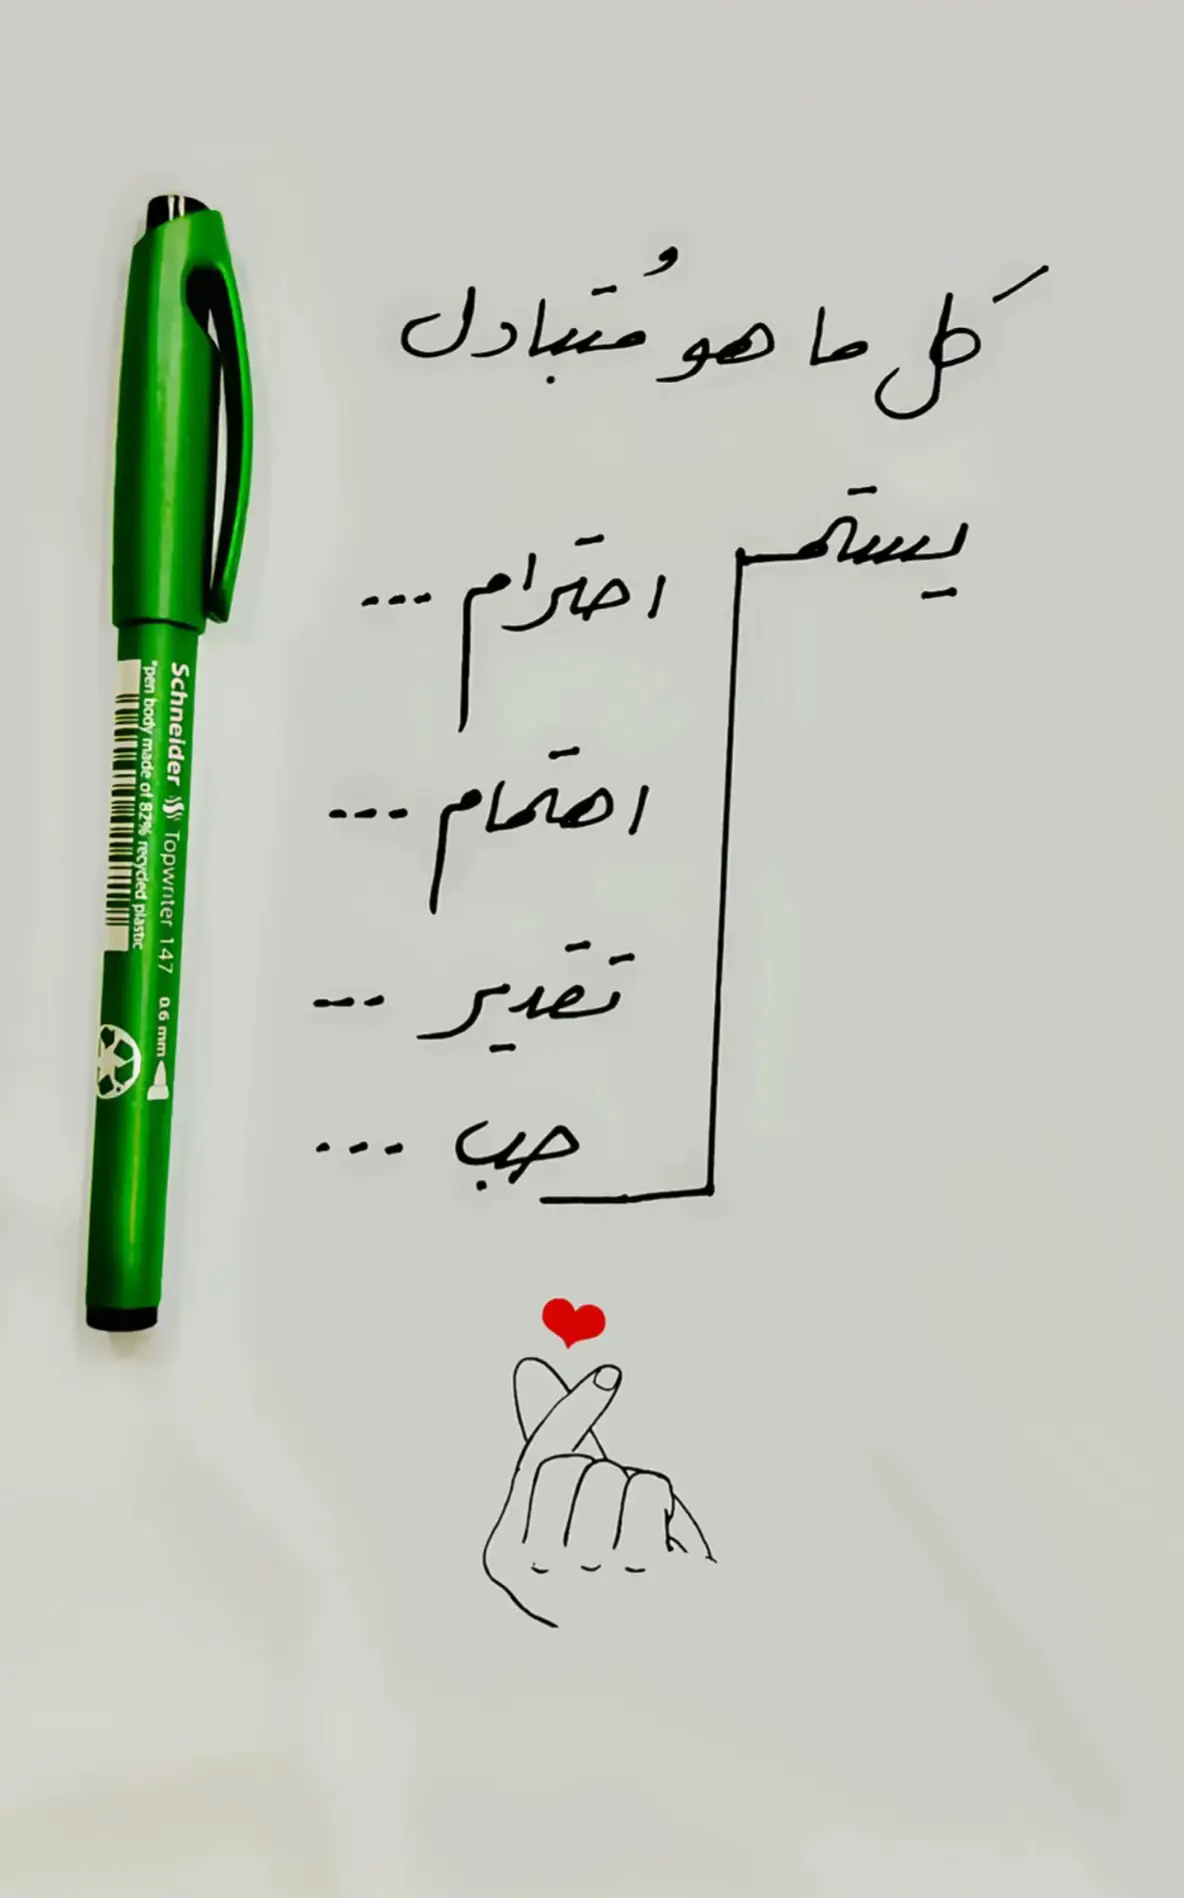 كل ما هو مُتبادل
يستمر
احترام ...
اهتمام ...
تقدير ...
حب ...
Schneider Topwriter 147 0.6 mm
*pen body made of 82% recycled plastic